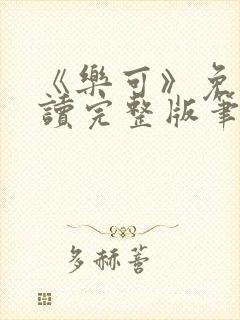 《樂可》免
讀完整版筆
多赫蓍